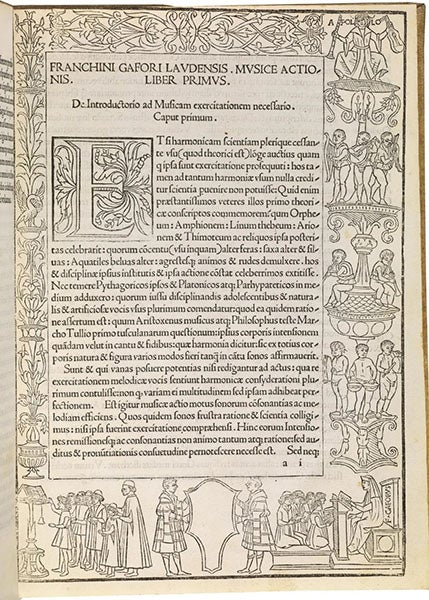 APOLLO
FRANCHINI GAFORI LAVDENSIS. MVSICE ACTIO-
NIS. LIBER PRIMVS.
De Introductorio ad Musicam exercitationem necessario.
Caput primum.
ETsi harmonicam scientiam plerique cessan-
te vsu(quod theorici est)lõge auctius quam
q ipsa sunt exercitatione prosequunt̃: hos ta-
men ad tantum harmoniæ vsum nulla credit̃
tur scientia puenire non potuisse: Quid enim
præstantissimos veteres illos primo theori-
cæ conscriptos commemorem:quum Orphe-
um: Amphionem: Linum thebeum: Ario-
nem & Thimoteum ac reliquos ipsa posteri-
tas celebrarit: quorum cõcentu(vsu inquam)alter feras: saxa alter & sil-
uas: Aquatiles beluas alter: agrestesq; animos & rudes demulxere. hos
& disciplinæ ipsius institutis & ipsa actione cõstat celeberrimos extitisse.
Nec temere Pythagoricos ipsos & Platonicos atq; Parhypateticos in me-
dium adduxero: quorum iussu disciplinandis adolescentibus & natura-
lis & artificiosæ vocis vsus plurimum comendatur:quod ea quidem ratio-
ne assertum est : quum Aristoxenus musicus atq; Philosophus teste Mar-
cho Tullio primo tusculanarum questionum:ipsius corporis intensionem
quãdam velut in cantu & fidibus:quæ harmonia dicitur:sic ex totius cor-
poris natura & figura varios modos fieri tanq̃ in cãtu sonos affirmauerit.
Sunt & qui vanas posuere potentias nisi redigantur ad actus : qua re
exercitationem melodicæ vocis sentiunt harmonicæ consyderationi plu-
rimum contulisse:non q, variam ei multitudinem sed ipsam adhibeat per-
fectionem. Est igitur musicæ actio motus sonorum cõsonantias ac me-
lodiam efficiens. Quos quidem sonos frustra ratione & scientia colligi-
mus : nisi ipsa fuerint exercitatione cõprehensi. Hinc eorum Intensio-
nes remissionesq; ac consonantias non animo tantum atq; ratione:sed au-
ditus & pronũtiationis consuetudine pernoscere necesse est. Sed neq;
a i
F. GAFORVS